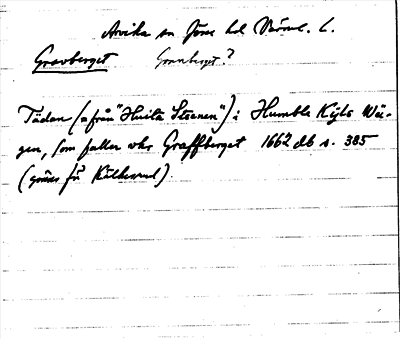 Arvika sn Jösse hd Värml. l.
Gravberget Grannberget?
Tädan (= från "Huita Steenen"): Humble Kijls Wä-
gen, som faller whr Graffberget 1662 db s. 385
(gräns fr